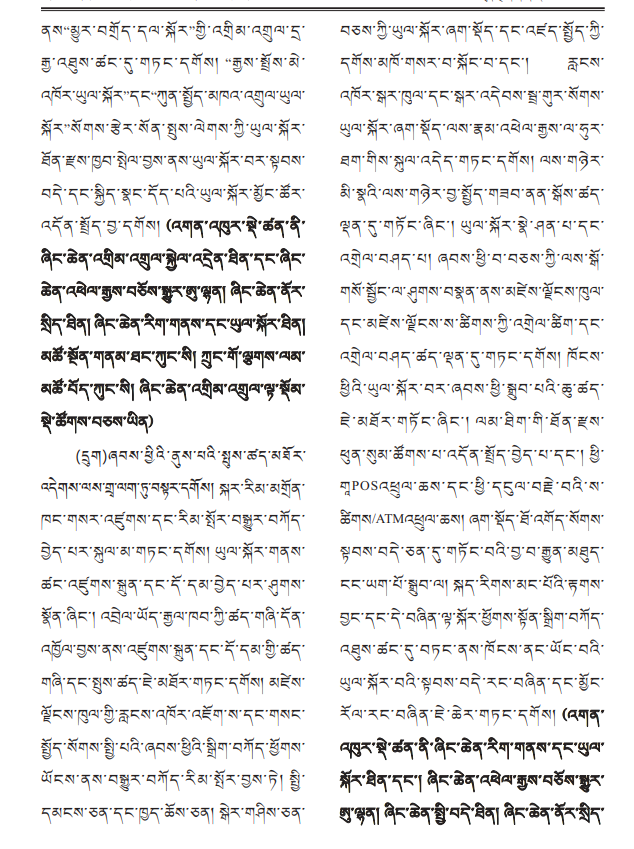 ནས“མྱུར་བགྲོད་དལ་སྐོར”གྱི་འགྲིམ་འགྲུལ་དྲ་
རྒྱ་འཐུས་ཚང་དུ་གཏང་དགོས། “རྒྱས་སྤྲོས་མེ་
འཁོར་ཡུལ་སྐོར”དང“ཀུན་སྤྱོད་མཁའ་འགྲུལ་ཡུལ་
སྐོར”སོགས་རྩེར་སོན་སྤུས་ལེགས་ཀྱི་ཡུལ་སྐོར་
ཐོན་རྫས་ཁྱབ་སྤེལ་བྱས་ནས་ཡུལ་སྐོར་བར་སྟབས་
བདེ་དང་སྐྱིད་སྣང་དོད་པའི་ཡུལ་སྐོར་མྱོང་ཚོར་
འདོན་སྤྲོད་བྱ་དགོས། (འགན་འཁུར་སྡེ་ཚན་ནི་
ཞིང་ཆེན་འགྲིམ་འགྲུལ་སྐྱེལ་འདྲེན་ཐིན་དང་ཞིང་
ཆེན་འཕེལ་རྒྱས་བཅོས་སྒྱུར་ཨུ་ལྷན། ཞིང་ཆེན་ནོར་
སྲིད་ཐིན། ཞིང་ཆེན་རིག་གནས་དང་ཡུལ་སྐོར་ཐིན།
མཚོ་སྔོན་གནམ་ཐང་ཀུང་སི། ཀྲུང་གོ་ལྕགས་ལམ་
མཚོ་བོད་ཀུང་སི། ཞིང་ཆེན་འགྲིམ་འགྲུལ་ལྟ་སྡོམ་
སྡེ་ཚོགས་བཅས་ཡིན)
(དྲུག)ཞབས་ཕྱིའི་ནུས་པའི་སྤུས་ཚད་མཐོར་
འདེགས་ལས་གྲྭ་ལག་ཏུ་བསྟར་དགོས། སྐར་རིམ་མགྲོན་
ཁང་གསར་འཛུགས་དང་རིམ་སྤོར་བསྒྱུར་བཀོད་
བྱེད་པར་སྐུལ་མ་གཏང་དགོས། ཡུལ་སྐོར་གནས་
ཚང་འཛུགས་སྐྲུན་དང་དོ་དམ་བྱེད་པར་ཤུགས་
སྣོན་ཞིང་། འབྲེལ་ཡོད་རྒྱལ་ཁབ་ཀྱི་ཚད་གཞི་དོན་
འཁྱོལ་བྱས་ནས་འཛུགས་སྐྲུན་དང་དོ་དམ་གྱི་ཚད་
གཞི་དང་སྤུས་ཚད་ཇེ་མཐོར་གཏང་དགོས། མཛེས་
ལྗོངས་ཁུལ་གྱི་རླངས་འཁོར་འཇོག་ས་དང་གསང་
སྤྱོད་སོགས་སྤྱི་པའི་ཞབས་ཕྱིའི་སྒྲིག་བཀོད་ཕྱོགས་
ཡོངས་ནས་བསྒྱུར་བཀོད་རིམ་སྤོར་བྱས་ཏེ། སྤྱི་
དམངས་ཅན་དང་ཁྱད་ཆོས་ཅན། སྒེར་གཤིས་ཅན་
བཅས་ཀྱི་ཡུལ་སྐོར་ཞག་སྡོད་དང་འཛད་སྤྱོད་ཀྱི་
དགོས་མཁོ་གསར་བ་སྐོང་བ་དང་། རླངས་
འཁོར་སྒར་ཁུལ་དང་སྒར་འདེབས་སྦྲ་གུར་སོགས་
ཡུལ་སྐོར་ཞག་སྡོད་ལས་རྣམ་འཕེལ་རྒྱས་ལ་ཧུར་
ཐག་གིས་སྐུལ་འདེད་གཏང་དགོས། ལས་གཉེར་
མི་སྣའི་ལས་གཉེར་བྱ་སྤྱོད་གཟབ་ནན་སྒོས་ཚད་
ལྡན་དུ་གཏོང་ཞིང་། ཡུལ་སྐོར་སྣེ་ཤན་པ་དང་
འགྲེལ་བཤད་པ། ཞབས་ཕྱི་བ་བཅས་ཀྱི་ལས་སྒོ་
གསོ་སྦྱོང་ལ་ཤུགས་བསྣན་ནས་མཛེས་ལྗོངས་ཁུལ་
དང་མཛེས་ལྗོངས་ས་ཚིགས་ཀྱི་འགྲེལ་ཚིག་དང་
འགྲེལ་བཤད་ཚད་ལྡན་དུ་གཏང་དགོས། ཁོངས་
ཕྱིའི་ཡུལ་སྐོར་བར་ཞབས་ཕྱི་སྒྲུབ་པའི་ཆུ་ཚད་
ཇེ་མཐོར་གཏོང་ཞིང་། ལམ་ཐིག་གི་ཐོན་རྫས་
ཕུན་སུམ་ཚོགས་པ་འདོན་སྤྲོད་བྱེད་པ་དང་། ཕྱི་
གླPOSའཕྲུལ་ཆས་དང་ཕྱི་དངུལ་བརྗེ་བའི་ས་
ཚིགས/ATMའཕྲུལ་ཆས། ཞག་སྡོད་ཐོ་འགོད་སོགས་
སྟབས་བདེ་ཅན་དུ་གཏོང་བའི་བྱ་བ་རྒྱུན་མཐུད་
ངང་ཡག་པོ་སྒྲུབ་ལ། སྐད་རིགས་མང་པོའི་རྟགས་
བྱང་དང་དེ་བཞིན་ལྟ་སྐོར་ཕྱོགས་སྟོན་སྒྲིག་བཀོད་
འཐུས་ཚང་དུ་བཏང་ནས་ཁོངས་ནང་ཡོང་བའི་
ཡུལ་སྐོར་བའི་སྟབས་བདེ་རང་བཞིན་དང་མྱོང་
རོལ་རང་བཞིན་ཇེ་ཆེར་གཏང་དགོས། (འགན་
འཁུར་སྡེ་ཚན་ནི་ཞིང་ཆེན་རིག་གནས་དང་ཡུལ་
སྐོར་ཐིན་དང་། ཞིང་ཆེན་འཕེལ་རྒྱས་བཅོས་སྒྱུར་
ཨུ་ལྷན། ཞིང་ཆེན་སྤྱི་བདེ་ཐིན། ཞིང་ཆེན་ནོར་སྲིད་